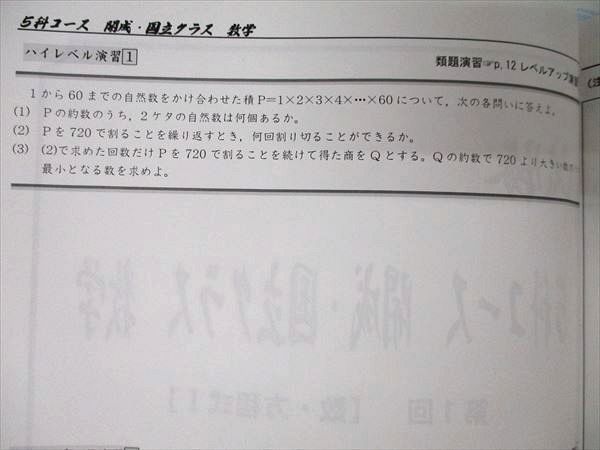 5科コース 開成・国立クラス 数学
ハイレベル演習1
類題演習☞p.12 レベルアップ演習
1から60までの自然数をかけ合わせた積P=1×2×3×4×…×60について，次の各問いに答えよ。
(1) Pの約数のうち，2ケタの自然数は何個あるか。
(2) Pを720で割ることを繰り返すとき，何回割り切ることができるか。
(3) (2)で求めた回数だけPを720で割ることを続けて得た商をQとする。Qの約数で720より大きい数の
最小となる数を求めよ。
5科コース 開成・国立クラス 数学
第1回 【数・方程式1】